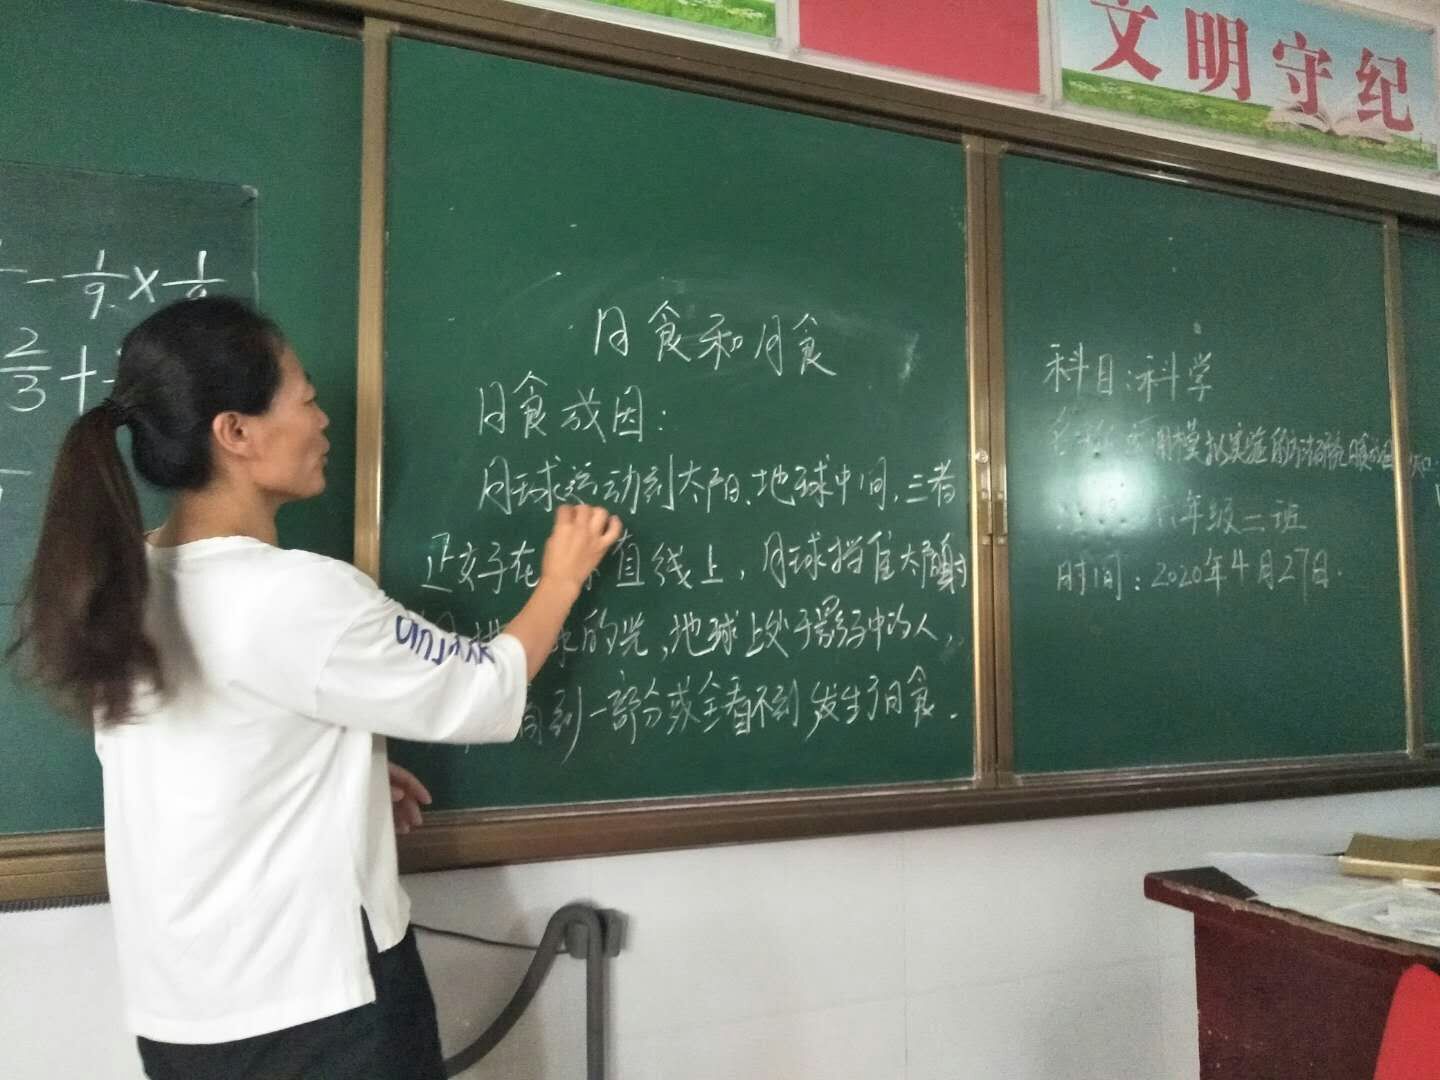 文明守纪
1/9 × 1/9
2/3 +
日食和月食
日食成因：
月球运动到太阳、地球中间，三者
正好在 直线上，月球挡住太阳射
的光，地球上处于影子中的人，
看到一部分或全看不到发生了日食.
科目：科学
用模拟实验的方法研究日食
六年级二班
时间：2020年4月27日.